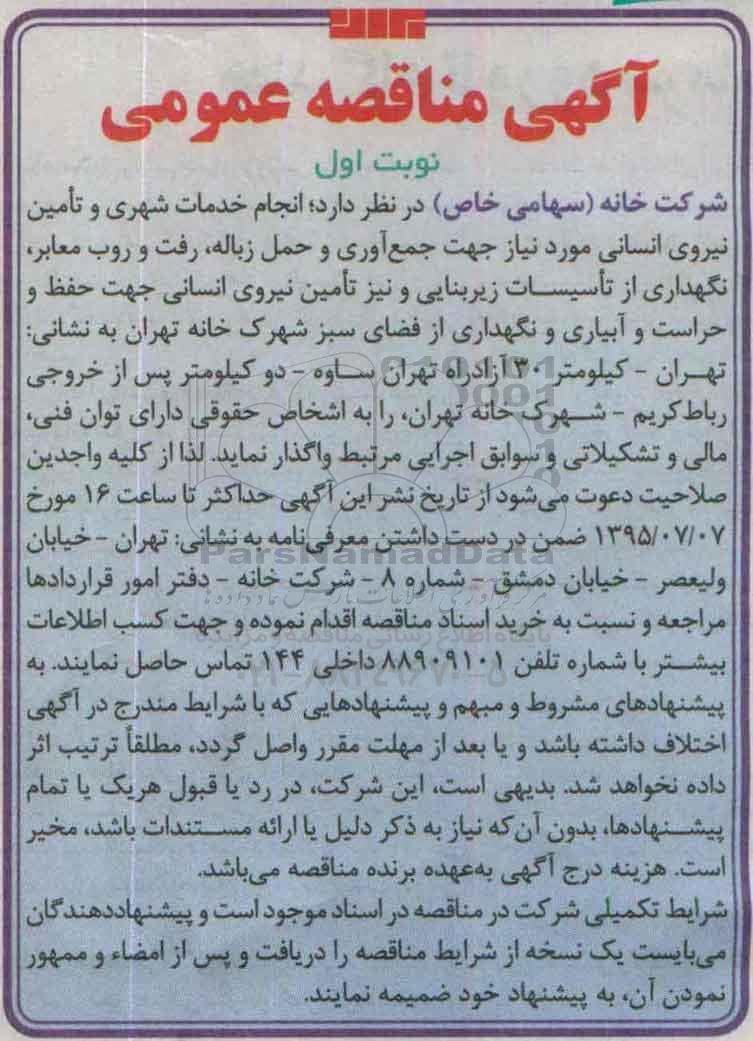 آگهی مناقصه عمومی
نوبت اول
شرکت خانه (سهامی خاص) در نظر دارد؛ انجام خدمات شهری و تأمین
نیروی انسانی مورد نیاز جهت جمع‌آوری و حمل زباله، رفت و روب معابر،
نگهداری از تأسیسات زیربنایی و نیز تأمین نیروی انسانی جهت حفظ و
حراست و آبیاری و نگهداری از فضای سبز شهرک خانه تهران به نشانی:
تهران - کیلومتر ۳۰ آزادراه تهران ساوه - دو کیلومتر پس از خروجی
رباط‌کریم - شهرک خانه تهران، را به اشخاص حقوقی دارای توان فنی،
مالی و تشکیلاتی و سوابق اجرایی مرتبط واگذار نماید. لذا از کلیه واجدین
صلاحیت دعوت می‌شود از تاریخ نشر این آگهی حداکثر تا ساعت ۱۶ مورخ
۱۳۹۵/۰۷/۰۷ ضمن در دست داشتن معرفی‌نامه به نشانی: تهران - خیابان
ParsNamadData
ولیعصر - خیابان دمشق - شماره ۸ - شرکت خانه - دفتر امور قراردادها
مراجعه و نسبت به خرید اسناد مناقصه اقدام نموده و جهت کسب اطلاعات
پایگاه اطلاع رسانی مناقصه و مزایده
بیشتر با شماره تلفن ۸۸۹۰۹۱۰۱ داخلی ۱۴۴ تماس حاصل نمایند. به
۰۲۱-۸۸۳۴۹۶۷۰-۵
پیشنهادهای مشروط و مبهم و پیشنهادهایی که با شرایط مندرج در آگهی
اختلاف داشته باشد و یا بعد از مهلت مقرر واصل گردد، مطلقاً ترتیب اثر
داده نخواهد شد. بدیهی است، این شرکت، در رد یا قبول هریک یا تمام
پیشنهادها، بدون آن‌که نیاز به ذکر دلیل یا ارائه مستندات باشد، مخیر
است. هزینه درج آگهی به‌عهده برنده مناقصه می‌باشد.
شرایط تکمیلی شرکت در مناقصه در اسناد موجود است و پیشنهاددهندگان
می‌بایست یک نسخه از شرایط مناقصه را دریافت و پس از امضاء و ممهور
نمودن آن، به پیشنهاد خود ضمیمه نمایند.